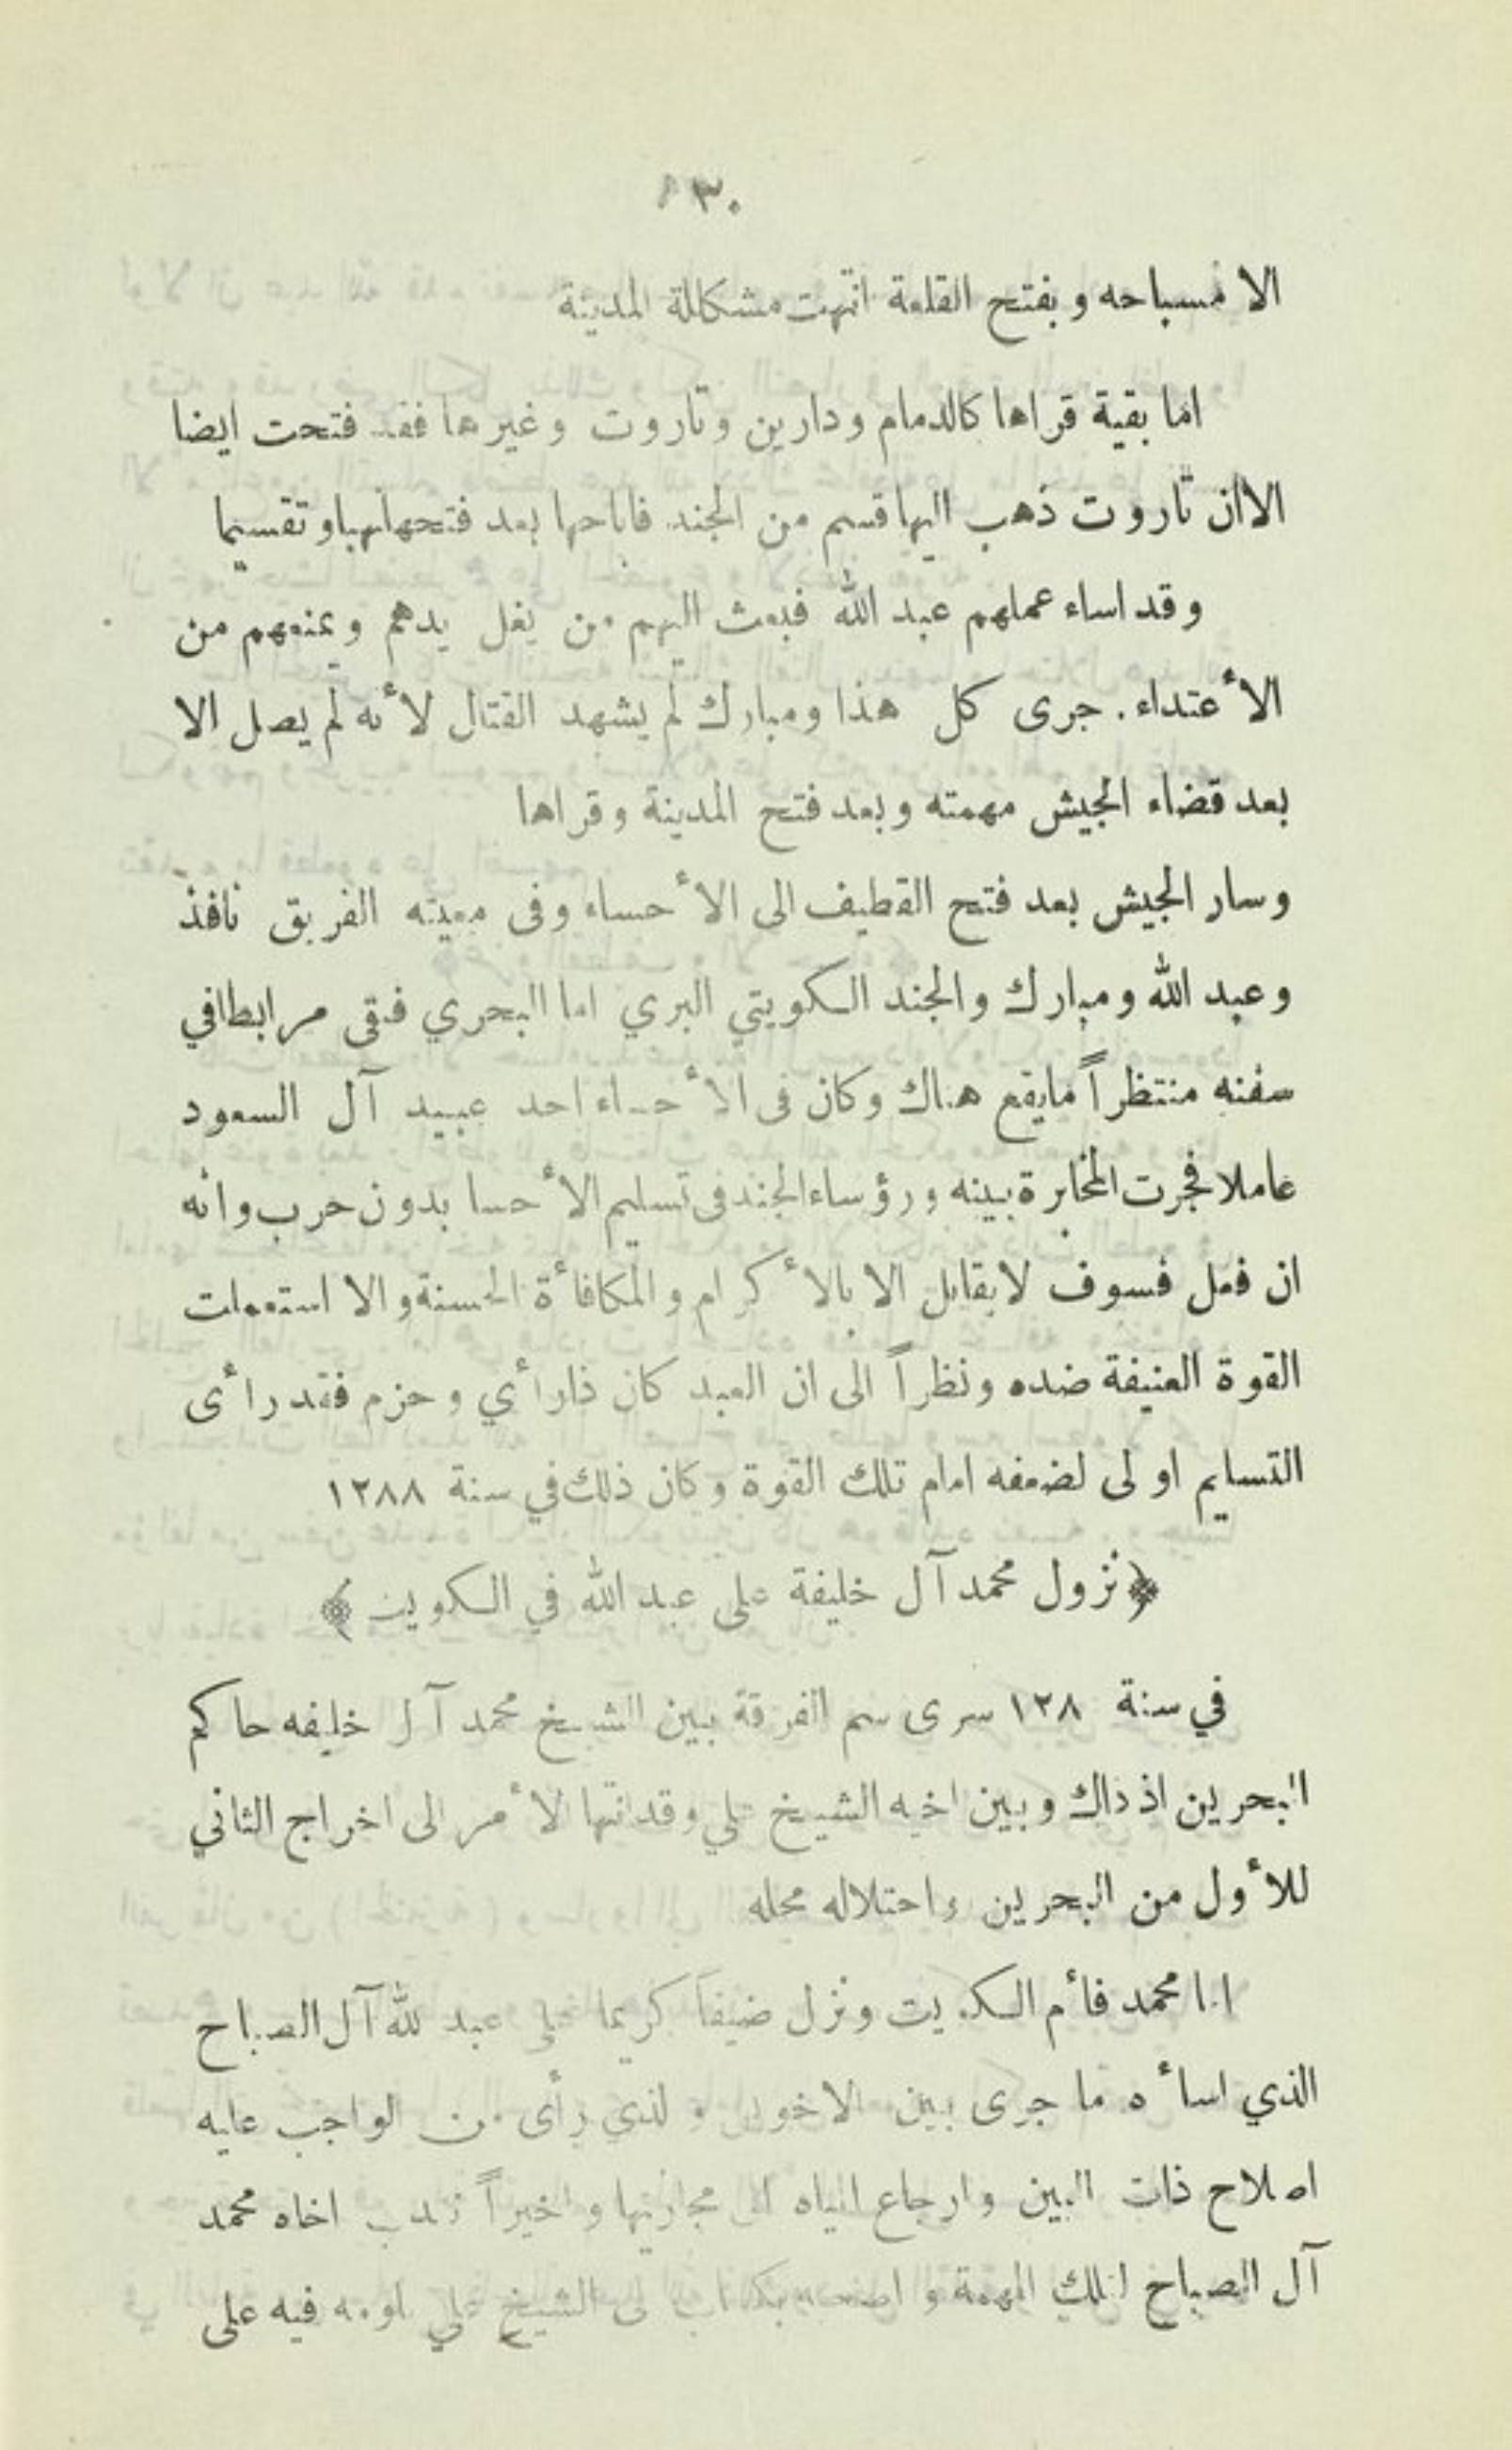 ٣٠
الا مسباحه وبفتح القلعة انتهت مشكالة المدينة
اما بقية قراها كالدمام ودارين وتاروت وغيرها فقد فتحت ايضا
الاان تاروت ذهب اليها قسم من الجند فاباحها بعد فتحها نهبا وتقسيما
وقد اساء عملهم عبد الله فبعث اليهم من يغل يدهم ويمنعهم من
الأعتداء . جرى كل هذا ومبارك لم يشهد القتال لأنه لم يصل الا
بعد قضاء الجيش مهمته وبعد فتح المدينة وقراها
وسار الجيش بعد فتح القطيف الى الأحساء وفى معيته الفريق نافذ
وعبد الله ومبارك والجند الكويتي البري اما البحري فبقى مرابطا في
سفنه منتظراً مايقع هناك وكان فى الأحساء احد عبيد آل السعود
عاملا فجرت المخابرة بينه ورؤساء الجند فى تسليم الأحسا بدون حرب وانه
ان فعل فسوف لايقابل الا بالأكرام والمكافأة الحسنة والا استعملت
القوة العنيفة ضده ونظراً الى ان العبد كان ذا رأي وحزم فقد رأى
التسليم اولى لضعفه امام تلك القوة وكان ذلك في سنة ١٢٨٨
﴿ نزول محمد آل خليفة على عبد الله في الكويت ﴾
في سنة ١٢٨ سرى سم الفرقة بين الشيخ محمد آل خليفه حاكم
البحرين اذ ذاك وبين اخيه الشيخ علي وقد انتها الأمر الى اخراج الثاني
للأول من البحرين واحتلاله محله
اما محمد فأم الكويت ونزل ضيفاً كريما على عبد لله آل الصباح
الذي اساأه ما جرى بين الاخوين والذي رأى من الواجب عليه
اصلاح ذات البين وارجاع المياه الى مجاريها واخيراً ندب اخاه محمد
آل الصباح لتلك المهمة واصحبه بكتاب الى الشيخ علي لومه فيه على